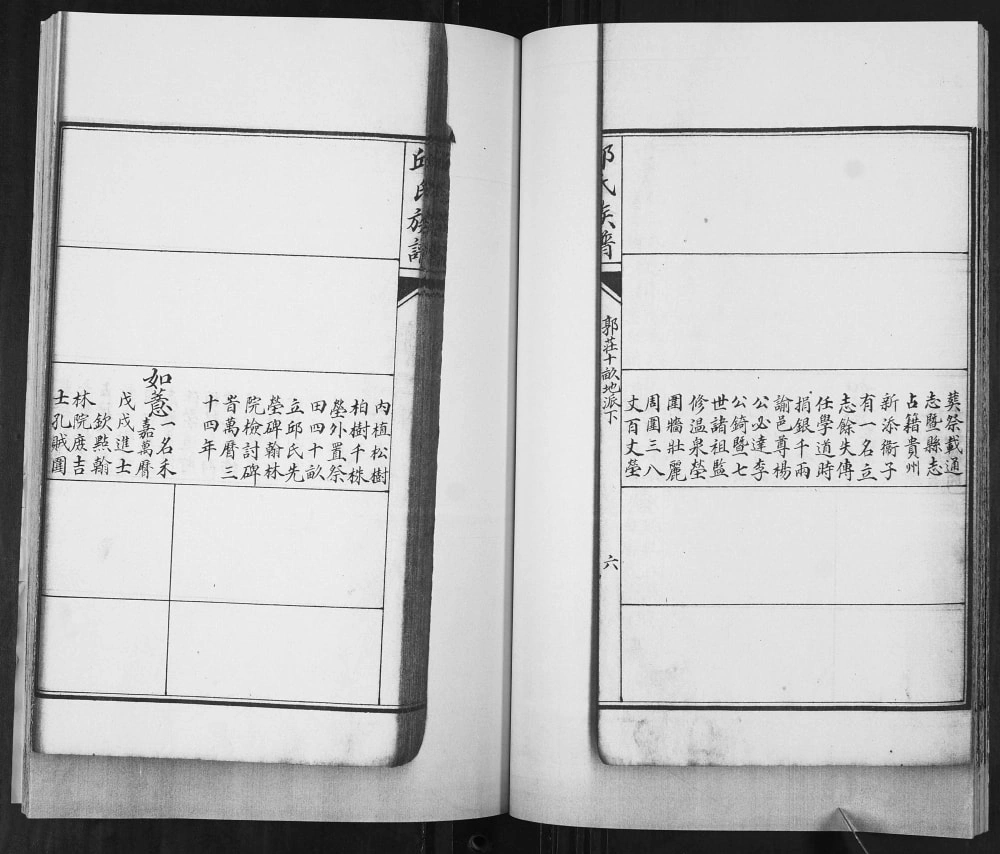 邱氏族譜
郭莊十畝地派下
六
葬祭載通
志暨縣志
占籍貴州
新添衞子
有一名立
志餘失傳
任學道時
捐銀千兩
諭邑尊楊
公必達李
公錡暨七
世諸祖監
修温泉塋
圍牆壯麗
周圍三八
丈百丈塋
邱氏族譜
內植松樹
柏樹千株
塋外置祭
田四十畝
立邱氏先
塋碑翰林
院檢討碑
旹萬曆三
十四年
如
一名禾
嘉萬曆
戊戌進士
欽㸃翰
林院庶吉
士孔賊圍